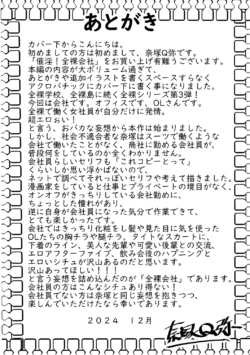 あとがき
カバー下からこんにちは。
初めましての方は初めまして、奈塚Q弥です。
「催淫！全裸会社」をお買い上げ有難うございます。
本編の内容が大ボリューム過ぎて、
あとがきや追加イラストを書くスペースすらなく
アクロバチックにカバー下に書く事になりました。
全裸学校、全裸島に続く全裸シリーズ第3弾！
今回は会社です。オフィスです。OLさんです。
全裸で働く女社員が自分だけに発情。
超エロぉい！
と言う、おバカな妄想から本作は始まりました。
しかし、社会不適合者な奈塚はスーツで働くような
会社で働いたことがなく、商社に勤める会社員が
普段何をしているのか全くわかりません。
会社員らしいセリフも「これコピーとって」
くらいしか思い浮かばないので、
ネットで調べてそれっぽいセリフや考えて描きました。
漫画家をしていると仕事とプライベートの境目がなく、
オンオフがきっちりしている会社勤めに、
ちょっとした憧れがあり、
逆に自身が会社員になった気分で作業できて、
とても楽しかったです。
会社ではきっちり化粧をし髪や見た目に気を使った
OLたちの胸チラや腿チラ、タイトなスカートに、
下着のライン、美人な先輩や可愛い後輩との交流、
エロアフターファイブ、飲み会後のハプニングと
エロいシチュが沢山あるのだと思います。
沢山あってほしい！！！
と言う妄想を詰め込んだのが「全裸会社」であります。
会社員の方はこんなシチュあり承引！
会社員でない方は奈塚と同じ妄想を抱きつつ、
楽しんでいただけたなら幸いであります。
2024 12月
奈塚Q弥